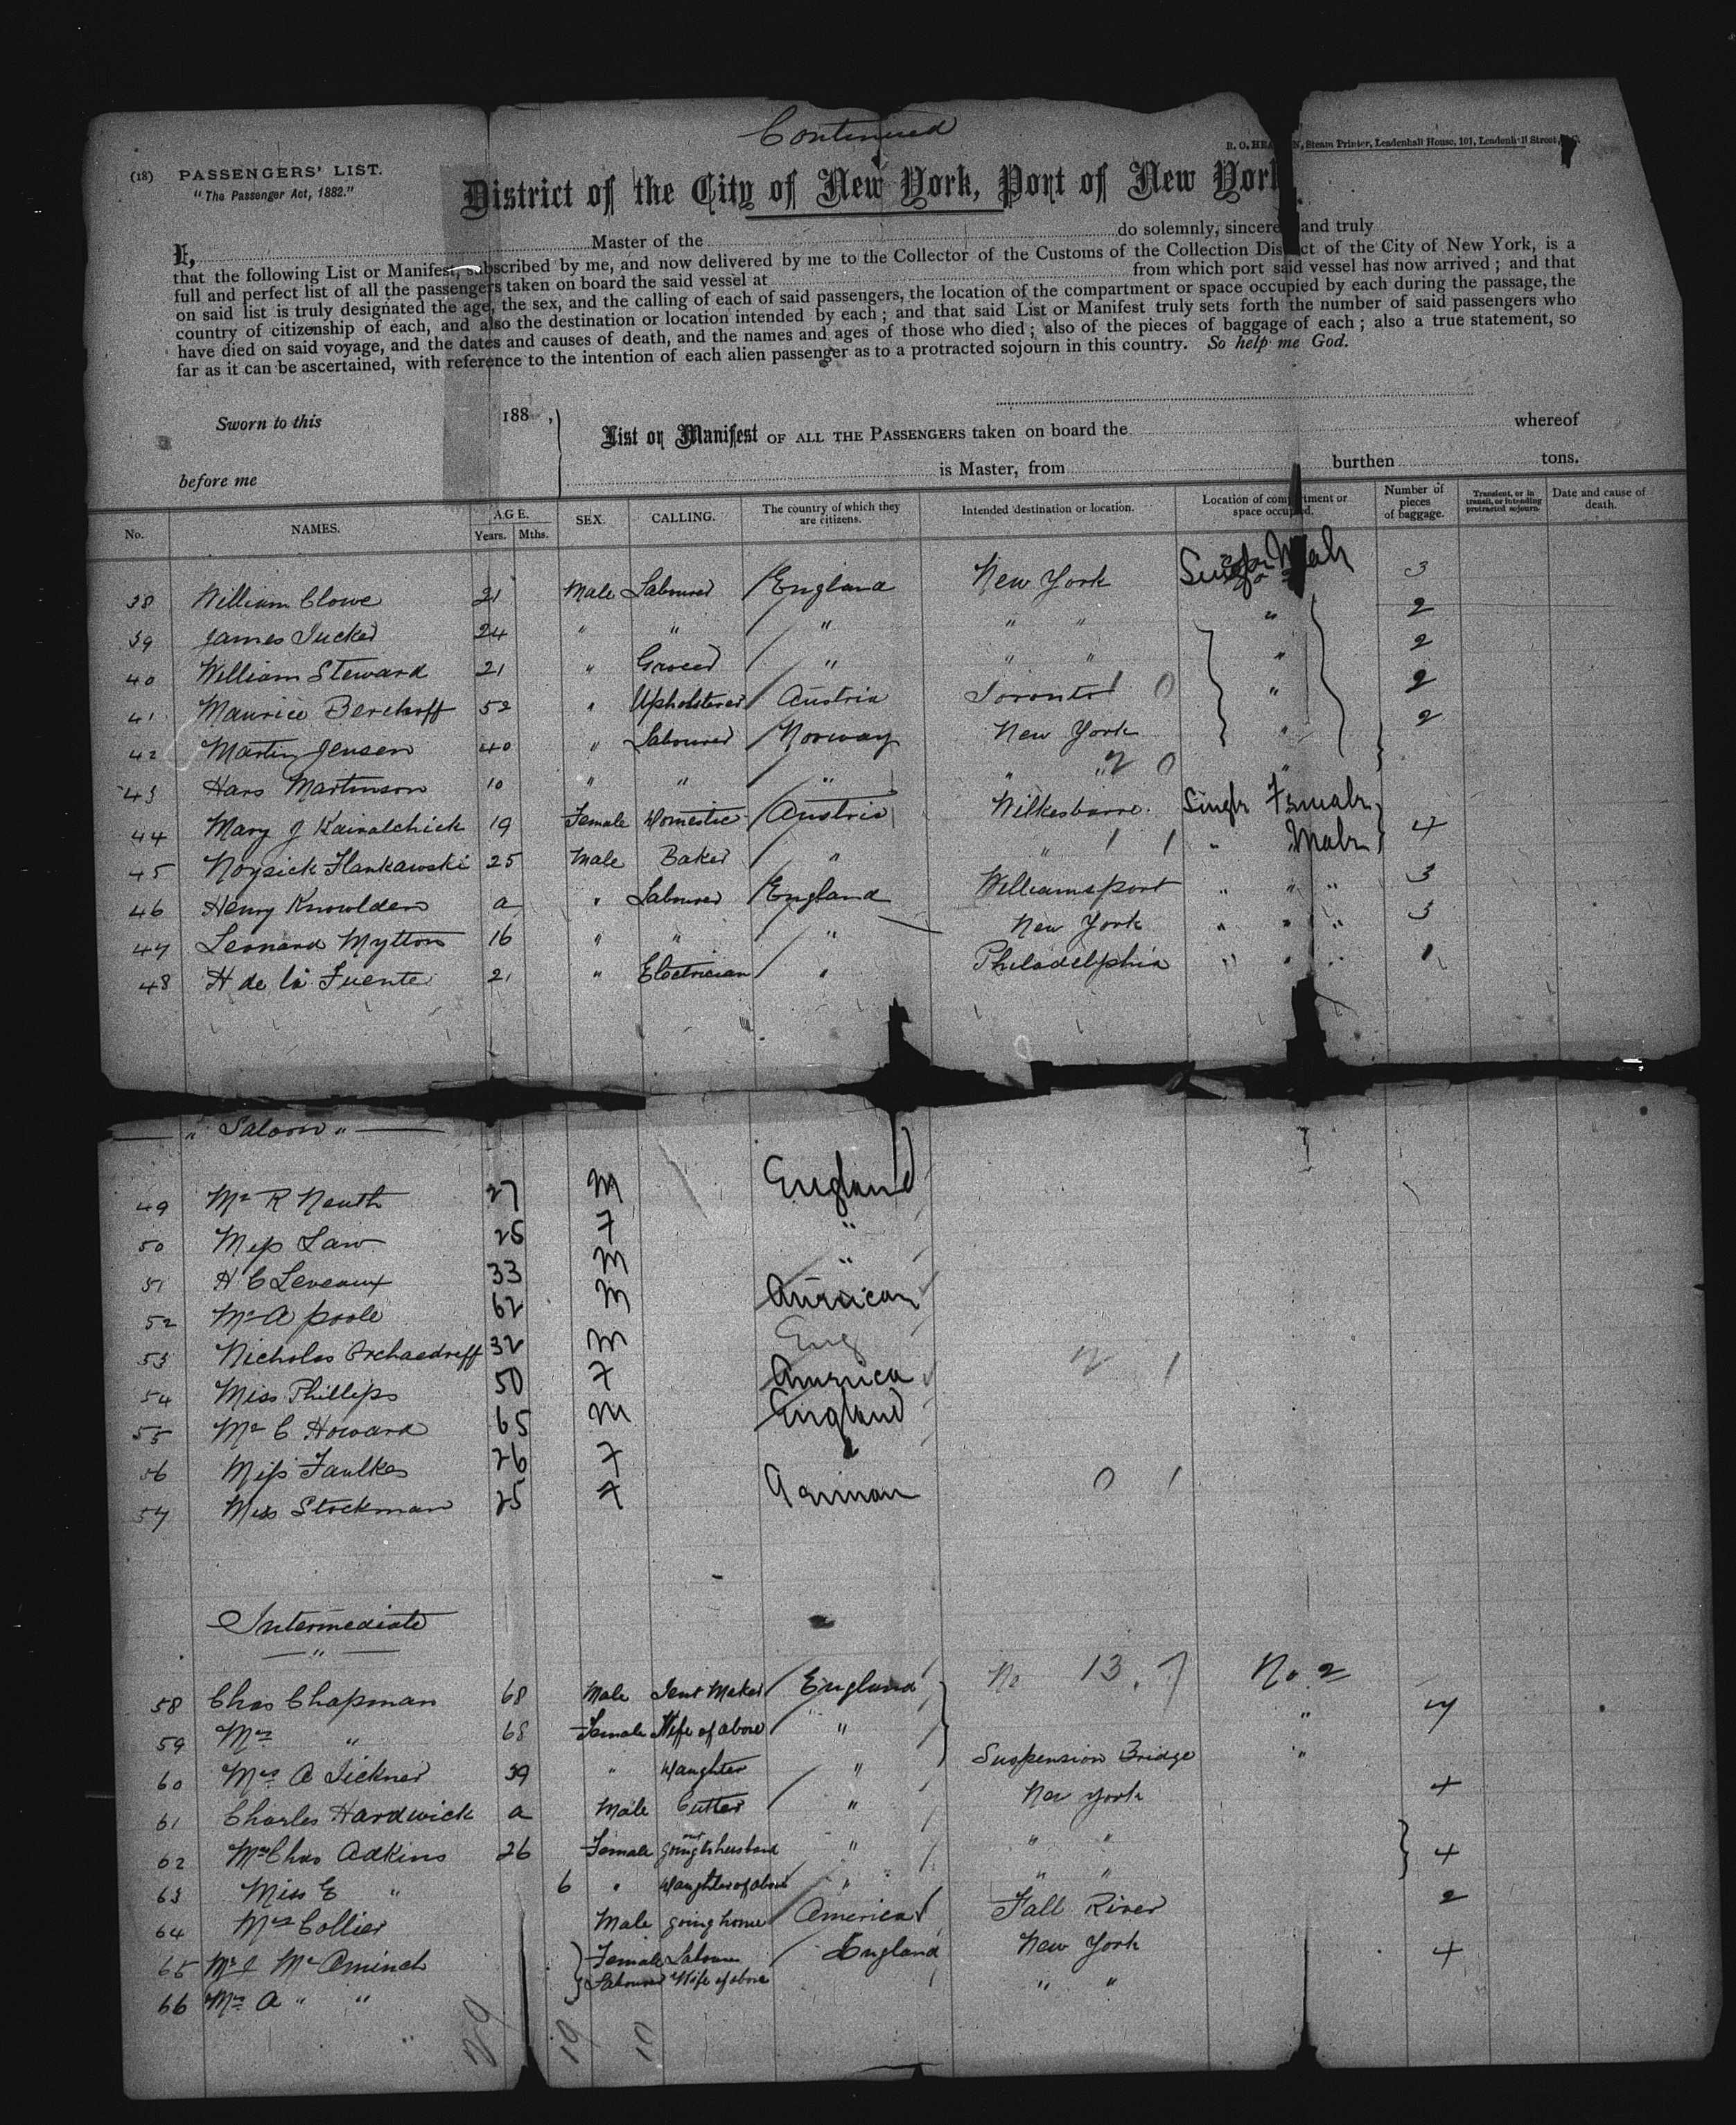 Continued
B. O. HEA N, Steam Printer, Leadenhall House, 101, Leadenhall Street,
(18) PASSENGERS' LIST.
"The Passenger Act, 1882."
District of the City of New York, Port of New York
I, Master of the do solemnly, sincere and truly
that the following List or Manifest, subscribed by me, and now delivered by me to the Collector of the Customs of the Collection District of the City of New York, is a
full and perfect list of all the passengers taken on board the said vessel at from which port said vessel has now arrived ; and that
on said list is truly designated the age, the sex, and the calling of each of said passengers, the location of the compartment or space occupied by each during the passage, the
country of citizenship of each, and also the destination or location intended by each ; and that said List or Manifest truly sets forth the number of said passengers who
have died on said voyage, and the dates and causes of death, and the names and ages of those who died ; also of the pieces of baggage of each ; also a true statement, so
far as it can be ascertained, with reference to the intention of each alien passenger as to a protracted sojourn in this country. So help me God.
Sworn to this 188 ,
List or Manifest OF ALL THE PASSENGERS taken on board the whereof
before me is Master, from burthen tons.
No. NAMES. AGE. Years. Mths. SEX. CALLING. The country of which they are citizens. Intended destination or location. Location of compartment or space occupied. Number of pieces of baggage. Transient, or in transit, or intending protracted sojourn. Date and cause of death.
38 William Clowe 21 Male Labourer England New York Single Male 3
39 James Tucker 24 " " " " " " 2
40 William Steward 21 " Grocer " " " " 2
41 Maurice Berchoff 52 " Upholsterer Austria Toronto 1 0 " 2
42 Martin Jensen 40 " Labourer Norway New York " 2
43 Hans Martinson 10 " " " " " 2 0 "
44 Mary J Kairalchick 19 Female Domestic Austria Wilkesbarre. Single Female
45 Noysick Hankawski 25 Male Baker " " 1 1 " Male 4
46 Henry Knowlden a " Labourer England Williamsport " " " 3
47 Leonard Mytton 16 " " " New York " " " 3
48 H de la Fuente 21 " Electrician " Philadelphia " " " 1
" Saloon "
49 Mr R Neuth 27 M England
50 Miss Law 25 F "
51 H C Leveaux 33 M "
52 Mr A Poole 62 M American
53 Nicholas Orchaedreff 32 M Eng
54 Miss Phillips 50 F America 2 1
55 Mr C Howard 65 M England
56 Miss Faulkes 26 F
57 Miss Stockman 25 F German 0 1
Intermediate
"
58 Chas Chapman 68 Male Tent Maker England No 13.7 No. 2
59 Mrs " 68 Female Wife of above " " 7
60 Mrs A Tickner 39 " Daughter " Suspension Bridge "
61 Charles Hardwick a Male Cutter " New York 4
62 Mrs Chas Adkins 26 Female going out to husband " " " 4
63 Miss E " 6 " Daughter of above " " "
64 Mrs Collier Male going home America Fall River 2
65 Mr J McAminch Female Labourer England New York 4
66 Mrs A " " Labourer Wife of above " "
29 19 10